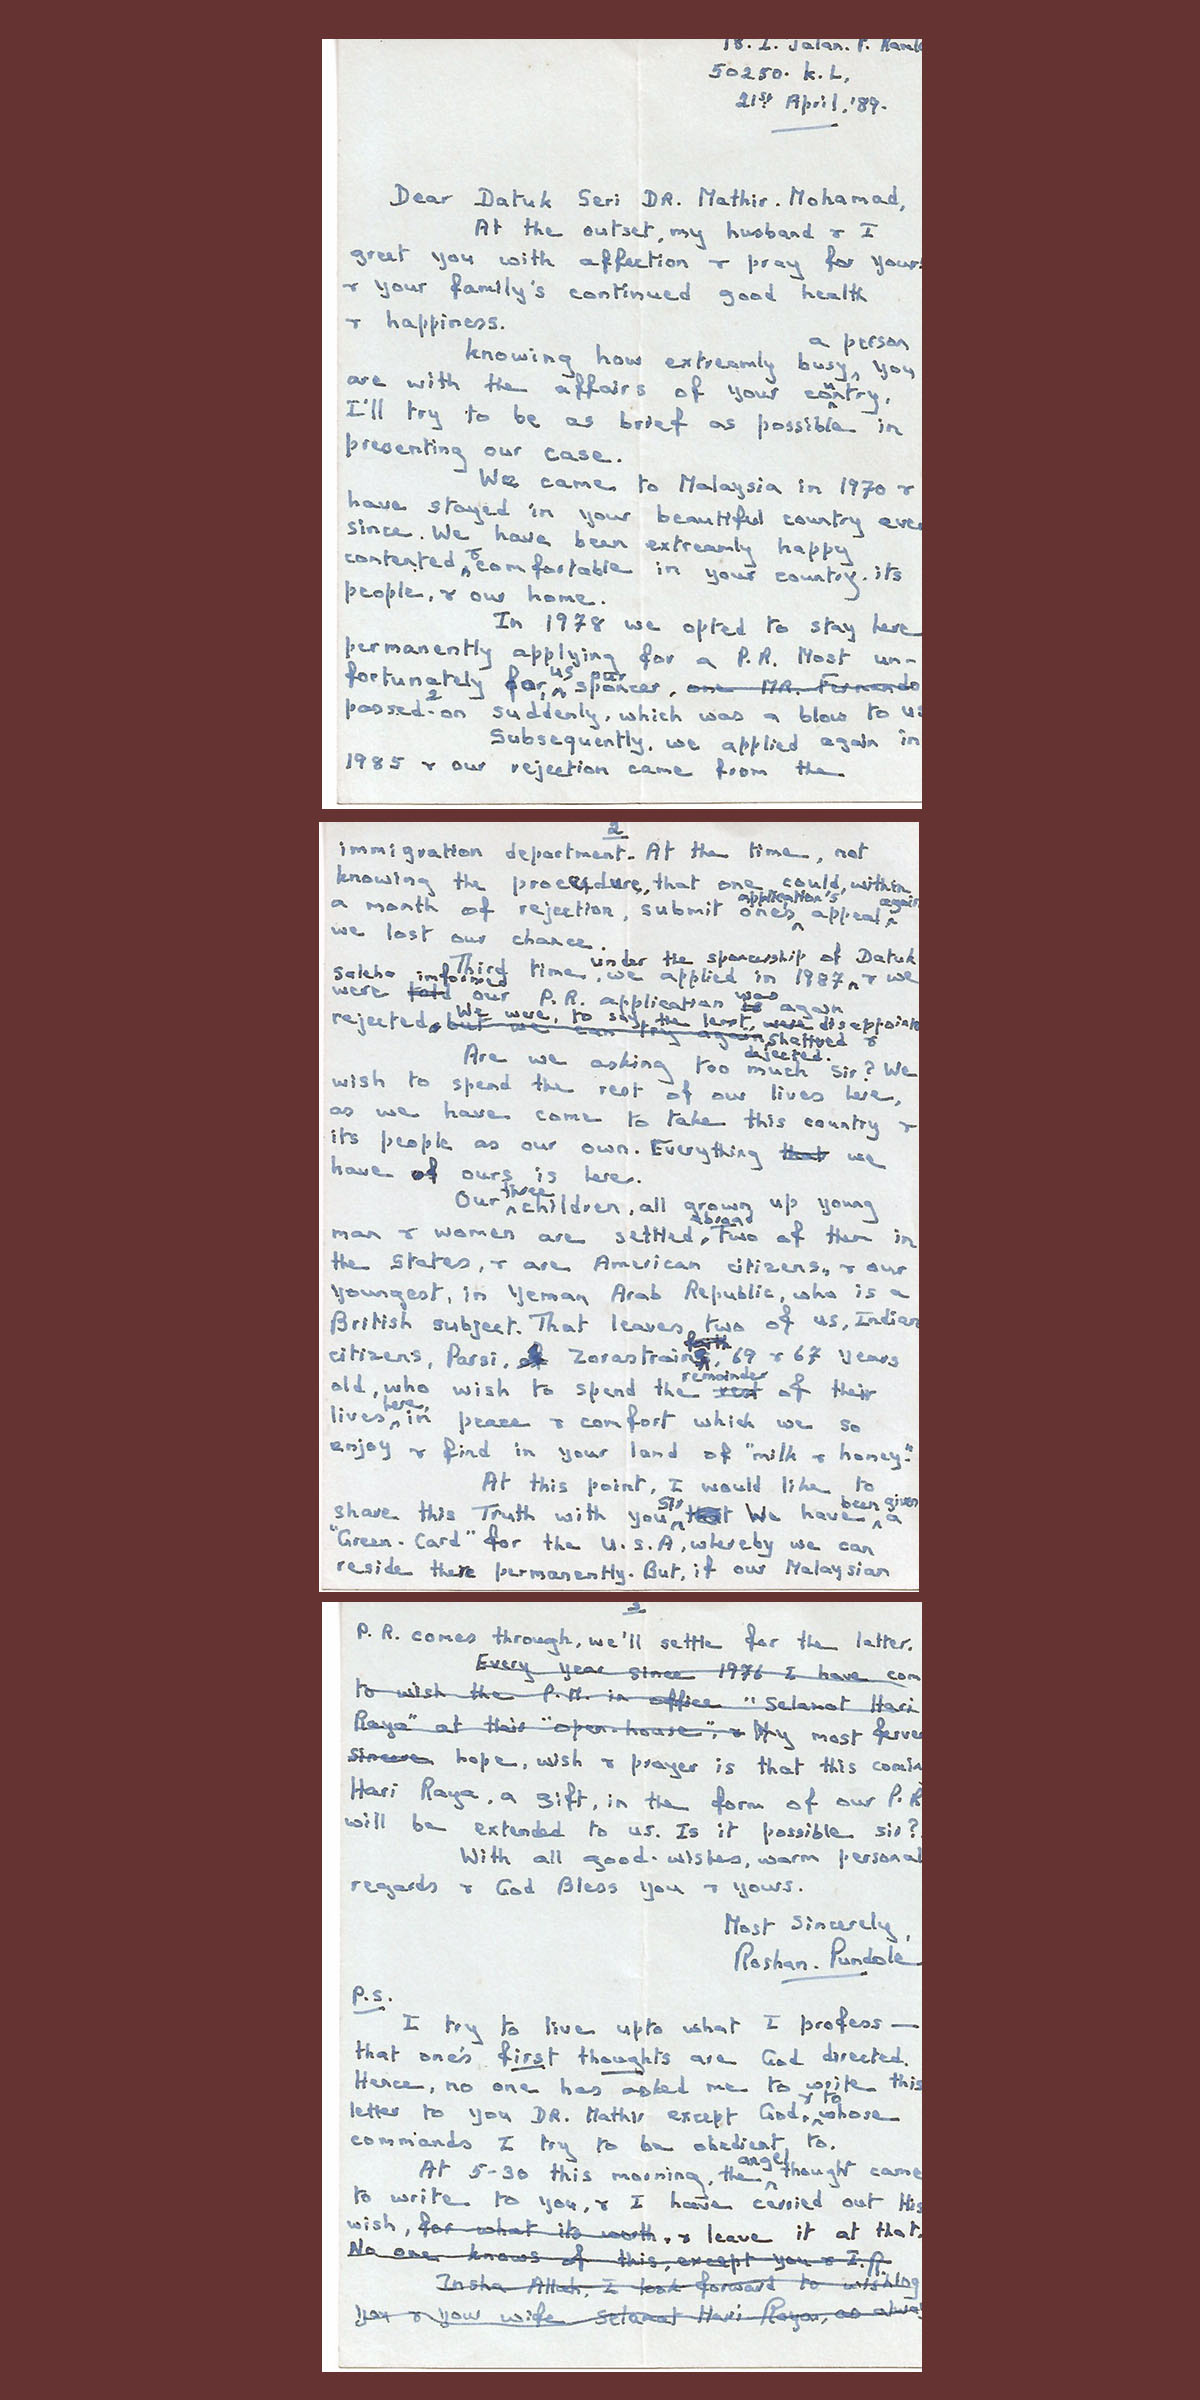 18. I. Jalan. P. Ramle
50250. K.L,
21st April, '89.
Dear Datuk Seri DR. Mathir. Mohamad,
At the outset, my husband & I
greet you with affection & pray for yours
& your family's continued good health
& happiness.
a person
knowing how extreamly busy, you
are with the affairs of your country,
I'll try to be as brief as possible in
presenting our case.
We came to Malaysia in 1970 &
have stayed in your beautiful country ever
since. We have been extreamly happy
contented & comfortable in your country. its
people, & our home.
In 1978 we opted to stay here
permanently applying for a P.R. Most un-
fortunately for us our sponcer, one MR. Fernando
passed-on suddenly, which was a blow to us
Subsequently, we applied again in
1985 & our rejection came from the
2
immigration department. At the time, not
knowing the procedure, that one could, within
application's again
a month of rejection, submit one's appeal
we lost our chance.
under the sponcership of Datuk
Third time, we applied in 1987 & we
Saleha informed
were told our P.R. application was is again
We were, to say the least, were disappointe
rejected, but we can try again, shattred &
dejected.
Are we asking too much Sir? We
wish to spend the rest of our lives here,
as we have come to take this country &
its people as our own. Everything that we
have of ours is here.
three
Our children, all grown up young
abroad
man & women are settled, Two of them in
the States, & are American citizens, & our
youngest, in Yeman Arab Republic, who is a
British subject. That leaves two of us, Indian
faith
citizens, Parsi, of Zorastrains, 69 & 67 years
remainder
old, who wish to spend the rest of their
here,
lives in peace & comfort which we so
enjoy & find in your land of "milk & honey."
At this point, I would like to
Sir been given
share this Truth with you that We have a
"Green-Card" for the U.S.A, whereby we can
reside there permanently. But, if our Malaysian
3
P.R. comes through, we'll settle for the latter.
Every year since 1976 I have com
to wish the P.M. in office "Selamat Hari
Raya" at their "open-house", & My most ferve
sincere hope, wish & prayer is that this comin
Hari Raya, a gift, in the form of our P.R
will be extended to us. Is it possible sir?
With all good-wishes, warm personal
regards & God Bless you & yours.
Most Sincerely,
Roshan. Pundole
P.S.
I try to live upto what I profess —
that one's first thoughts are God directed.
Hence, no one has asked me to write this
& to
letter to you DR. Mathir except God, whose
commands I try to be obedient to.
angel
At 5-30 this morning, the thought came
to write to you, & I have carried out His
wish, for what its worth, & leave it at that.
No one knows of this, except you & I. R.
Insha Allah, I look forward to wishing
you & your wife Selamat Hari Raya, as alway